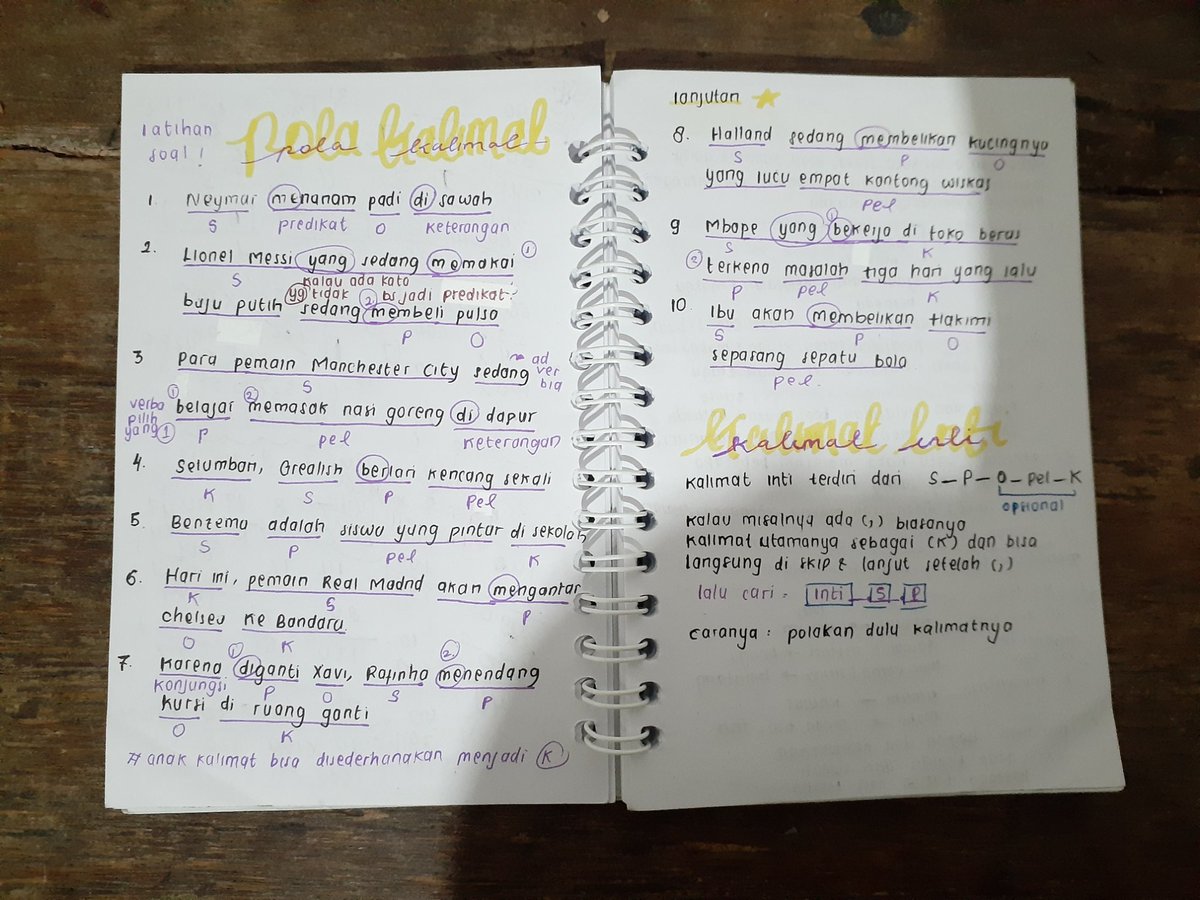 latihan
soal !
Pola Kalimat
pola kalimat
1. Neymar menanam padi di sawah
S predikat O keterangan
2. Lionel Messi yang sedang memakai 1
S kalau ada kata
yg tidak bisjadi predikat.
baju putih sedang 2 membeli pulsa
P O
3 Para pemain Manchester City sedang ~ ad
ver
bia
S
verba
pilih
yang 1
1 belajar 2 memasak nasi goreng di dapur
P pel keterangan
4. Selumbari, Grealish berlari kencang sekali
K S P Pel
5. Benzema adalah siswa yang pintar di sekolah
S P pel K
6. Hari ini, pemain Real Madrid akan mengantar
K S P
chelsea ke Bandara.
O K
7. Karena 1 diganti Xavi, Rafinha 2 menendang
konjungsi P O S P
kursi di ruang ganti
O K
# anak kalimat bisa disederhanakan menjadi K
lanjutan
8. Halland sedang membelikan kucingnya
S P O
yang lucu empat kantong wiskas
Pel
9 Mbape yang 1 bekerja di toko beras
S K
2 terkena masalah tiga hari yang lalu
P pel K
10. Ibu akan membelikan Hakimi
S P O
sepasang sepatu bola
pel.
Kalimat Inti
kalimat inti
kalimat inti terdiri dari S - P - O - pel - K
opsional
kalau misalnya ada (,) biasanya
kalimat utamanya sebagai (K) dan bisa
langsung di skip & lanjut setelah (,)
lalu cari = inti S P
caranya : polakan dulu kalimatnya